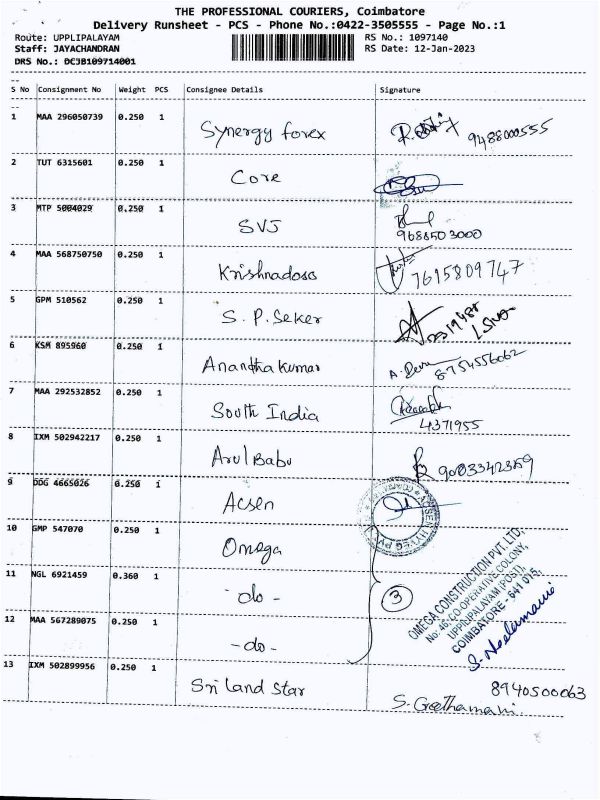 THE PROFESSIONAL COURIERS, Coimbatore
Delivery Runsheet - PCS - Phone No.:0422-3505555 - Page No.:1
Route: UPPLIPALAYAM RS No.: 1097140
Staff: JAYACHANDRAN RS Date: 12-Jan-2023
DRS No.: DCJB109714001
S No Consignment No Weight PCS Consignee Details Signature
1 MAA 296050739 0.250 1 Synergy forex 9488000555
2 TUT 6315601 0.250 1 Core
3 MTP 5004029 0.250 1 SVJ 9688503000
4 MAA 568750750 0.250 1 Krishnadoss 7615809747
5 GPM 510562 0.250 1 S. P. Seker
6 KSM 895960 0.250 1 Anandha Kumar 8754556062
7 MAA 292532852 0.250 1 South India 4371955
8 IXM 502942217 0.250 1 Arul Babu 9003342389
9 DDG 4665026 0.250 1 Acsen
10 GMP 547070 0.250 1 Omega
11 NGL 6921459 0.360 1 - do - 3
12 MAA 567289075 0.250 1 - do -
OMEGA CONSTRUCTION PVT. LTD,
No: 46, CO-OPERATIVE COLONY,
UPPILIPALAYAM (POST),
COIMBATORE - 641 015.
S. Neelamani
13 IXM 502899956 0.250 1 Sri Land Star 8940500063
S. Geethamani